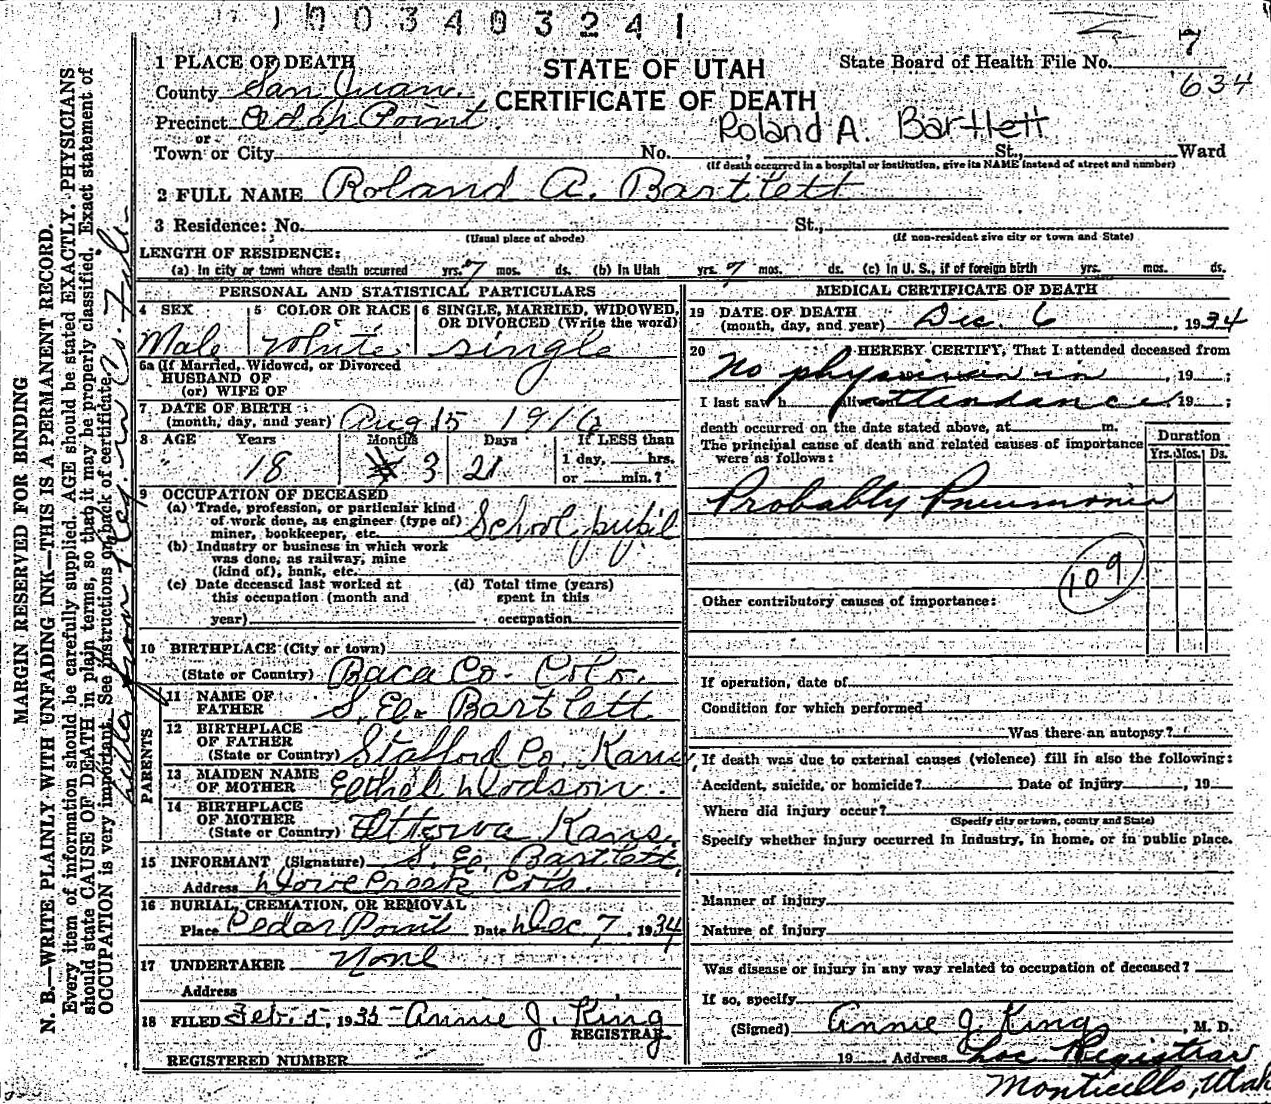 003403241
7
634
1 PLACE OF DEATH
STATE OF UTAH
State Board of Health File No.
County San Juan
CERTIFICATE OF DEATH
Precinct Cedar Point
Roland A. Bartlett
or
Town or City No. St., Ward
(If death occurred in a hospital or institution, give its NAME instead of street and number)
2 FULL NAME Roland A. Bartlett
3 Residence: No. St.,
(Usual place of abode) (If non-resident give city or town and State)
LENGTH OF RESIDENCE:
(a) In city or town where death occurred yrs. 7 mos. ds. (b) In Utah yrs. 7 mos. ds. (c) In U. S., if of foreign birth yrs. mos. ds.
PERSONAL AND STATISTICAL PARTICULARS
4 SEX
Male
5 COLOR OR RACE
White
6 SINGLE, MARRIED, WIDOWED,
OR DIVORCED (Write the word)
single
6a (If Married, Widowed, or Divorced
HUSBAND OF
(or) WIFE OF
7 DATE OF BIRTH
(month, day, and year) Aug 15 1916
8 AGE Years Months Days If LESS than
18 3 21 1 day, hrs.
or min.?
9 OCCUPATION OF DECEASED
(a) Trade, profession, or particular kind
of work done, as engineer (type of)
miner, bookkeeper, etc. School pupil
(b) Industry or business in which work
was done, as railway, mine
(kind of), bank, etc.
(c) Date deceased last worked at
this occupation (month and
year)
(d) Total time (years)
spent in this
occupation
10 BIRTHPLACE (City or town)
(State or Country) Baca Co. Colo.
PARENTS
11 NAME OF
FATHER S. E. Bartlett
12 BIRTHPLACE
OF FATHER
(State or Country) Stafford Co. Kans
13 MAIDEN NAME
OF MOTHER Ethel Dodson
14 BIRTHPLACE
OF MOTHER
(State or Country) Ottowa Kans.
15 INFORMANT (Signature) S. E. Bartlett
Address Dove Creek Colo.
16 BURIAL, CREMATION, OR REMOVAL
Place Cedar Point Date Dec 7, 1934
17 UNDERTAKER None
Address
18 FILED Feb. 5, 1935 Annie J. King
REGISTRAR
REGISTERED NUMBER
MEDICAL CERTIFICATE OF DEATH
19 DATE OF DEATH
(month, day, and year) Dec. 6, 1934
20 I HEREBY CERTIFY, That I attended deceased from
No physician in , 19 ;
I last saw h alive attendance, 19 ;
death occurred on the date stated above, at m.
The principal cause of death and related causes of importance
were as follows:
Duration
Yrs. Mos. Ds.
Probably Pneumonia
109
Other contributory causes of importance:
If operation, date of
Condition for which performed
Was there an autopsy?
If death was due to external causes (violence) fill in also the following:
Accident, suicide, or homicide? Date of injury , 19
Where did injury occur?
(Specify city or town, county and State)
Specify whether injury occurred in Industry, in home, or in public place.
Manner of injury
Nature of injury
Was disease or injury in any way related to occupation of deceased?
If so, specify
(Signed) Annie J. King, M. D.
19 Address Loc Registrar
Monticello, Utah
MARGIN RESERVED FOR BINDING
N. B.—WRITE PLAINLY WITH UNFADING INK—THIS IS A PERMANENT RECORD.
Every item of information should be carefully supplied. AGE should be stated EXACTLY. PHYSICIANS
should state CAUSE OF DEATH in plain terms, so that it may be properly classified. Exact statement of
OCCUPATION is very important. See instructions on back of certificate.